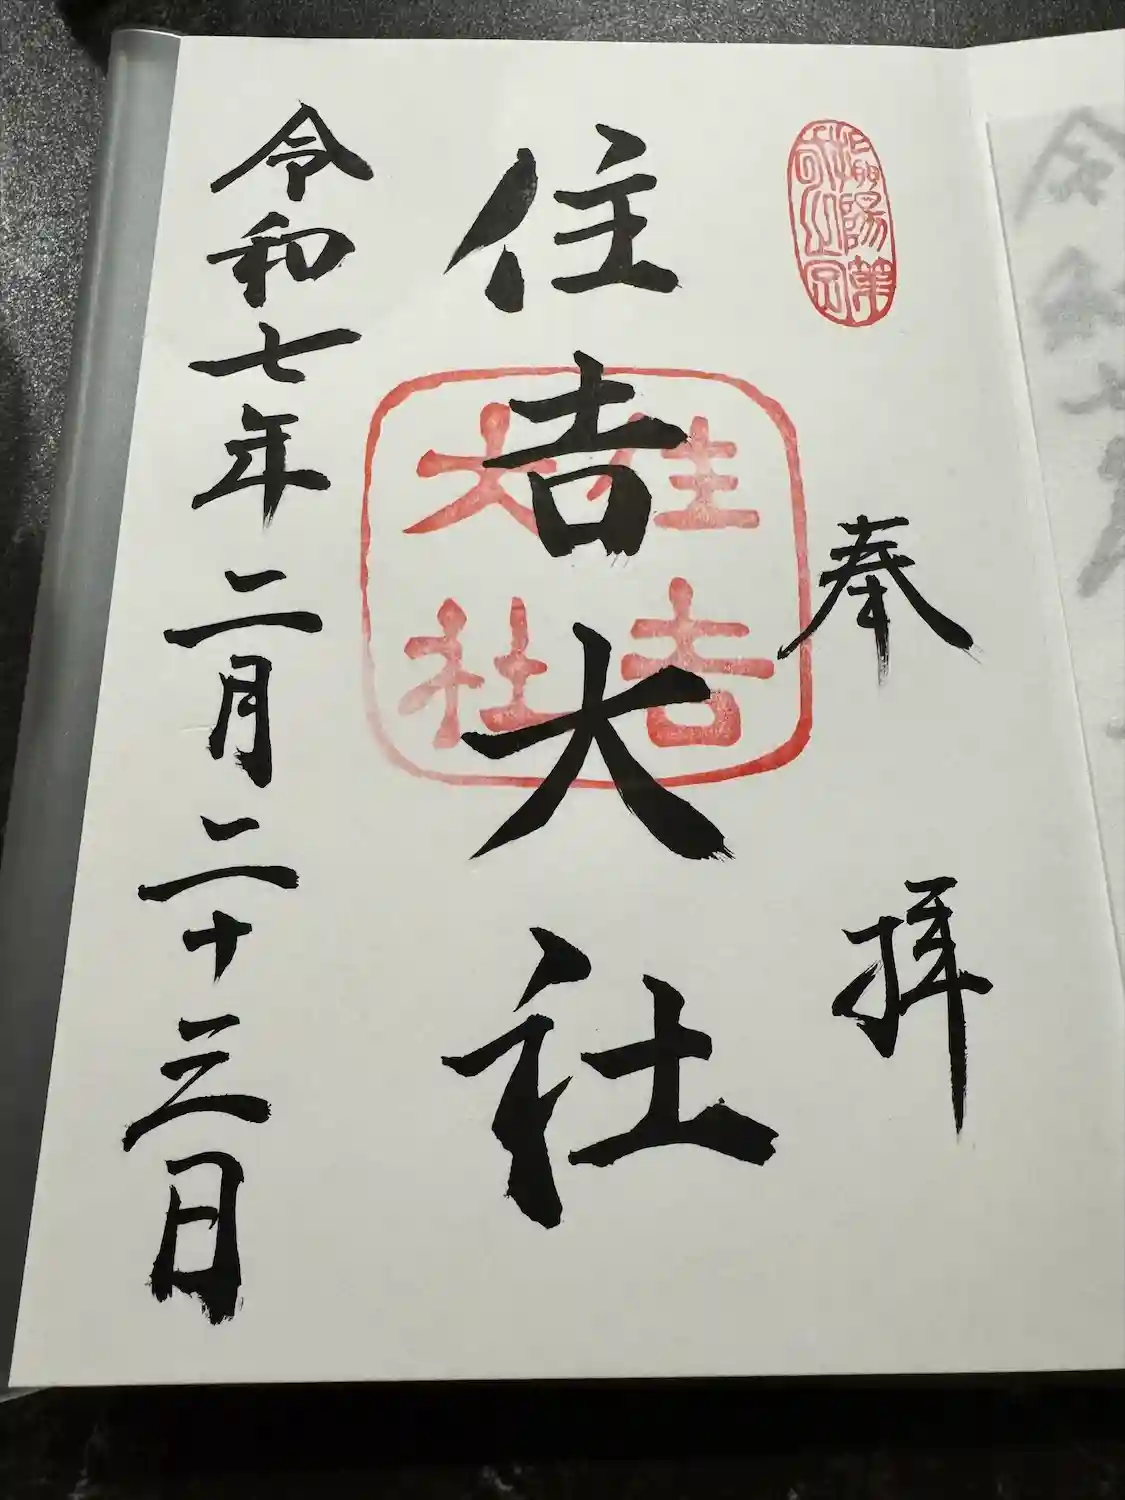 奉拝
住吉大社
住吉大社
令和七年二月二十三日